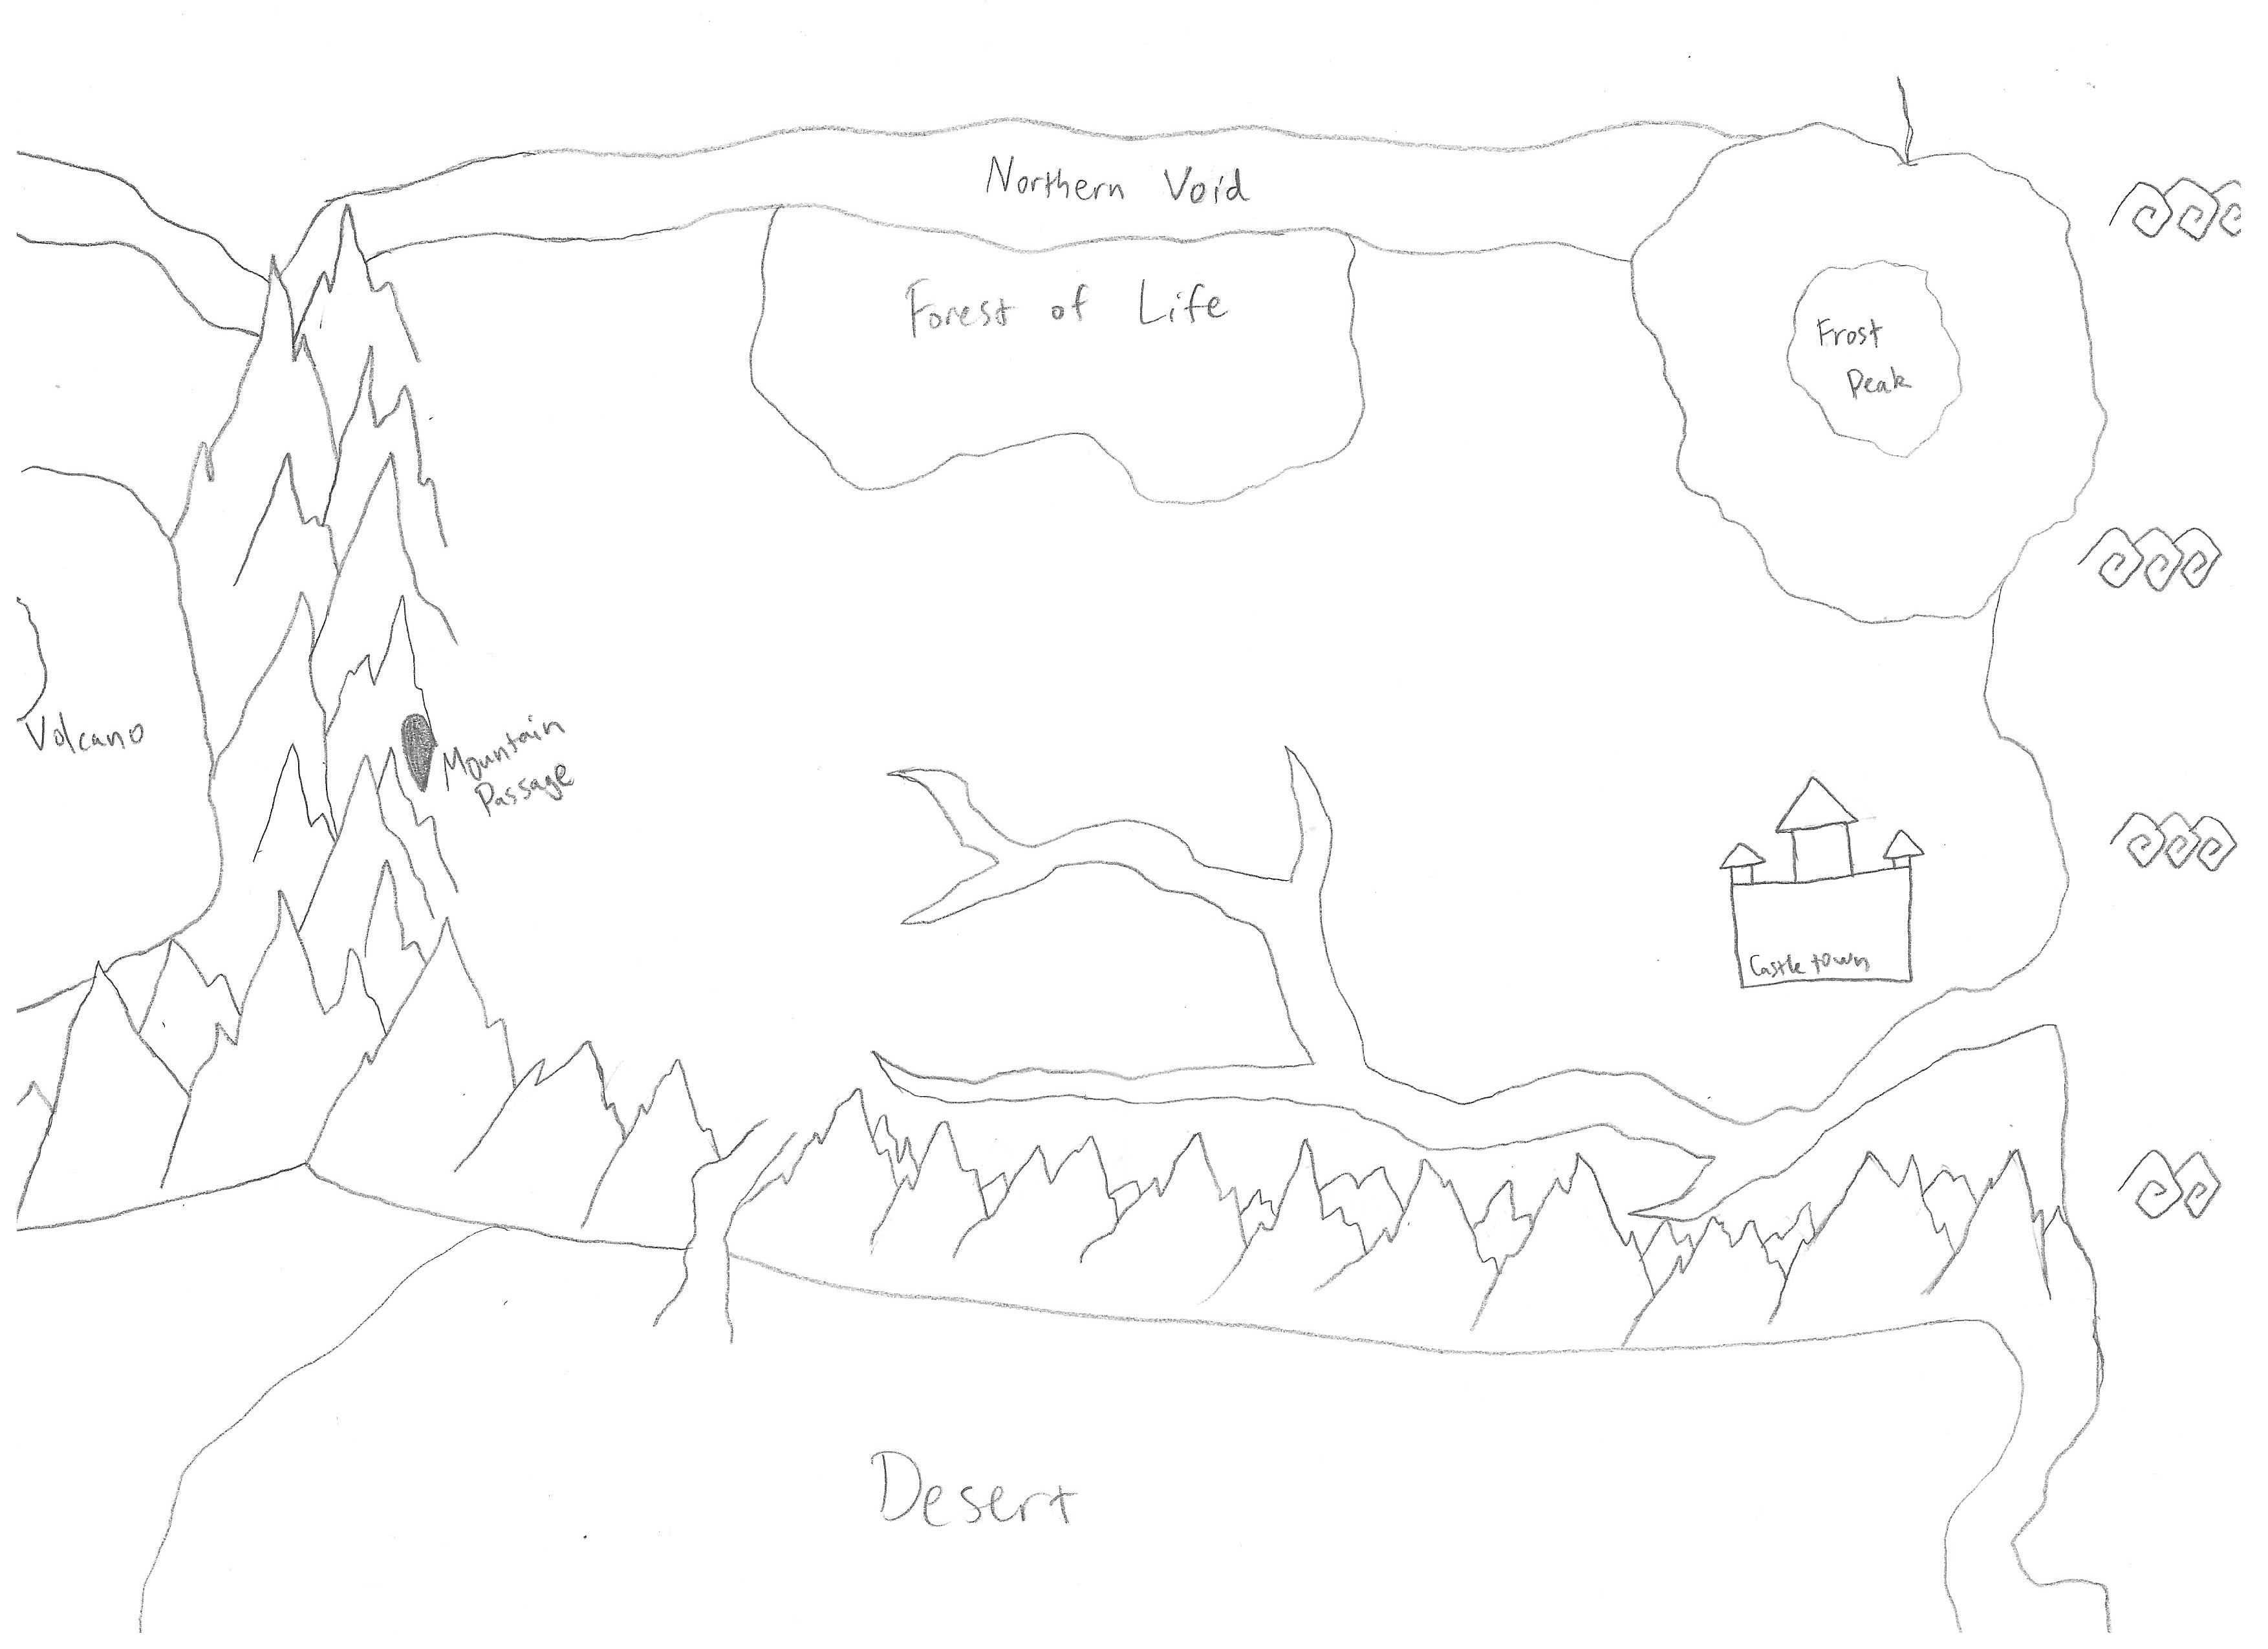 Northern Void
Forest of Life
Frost
Peak
Volcano
Mountain
Passage
Castle town
Desert